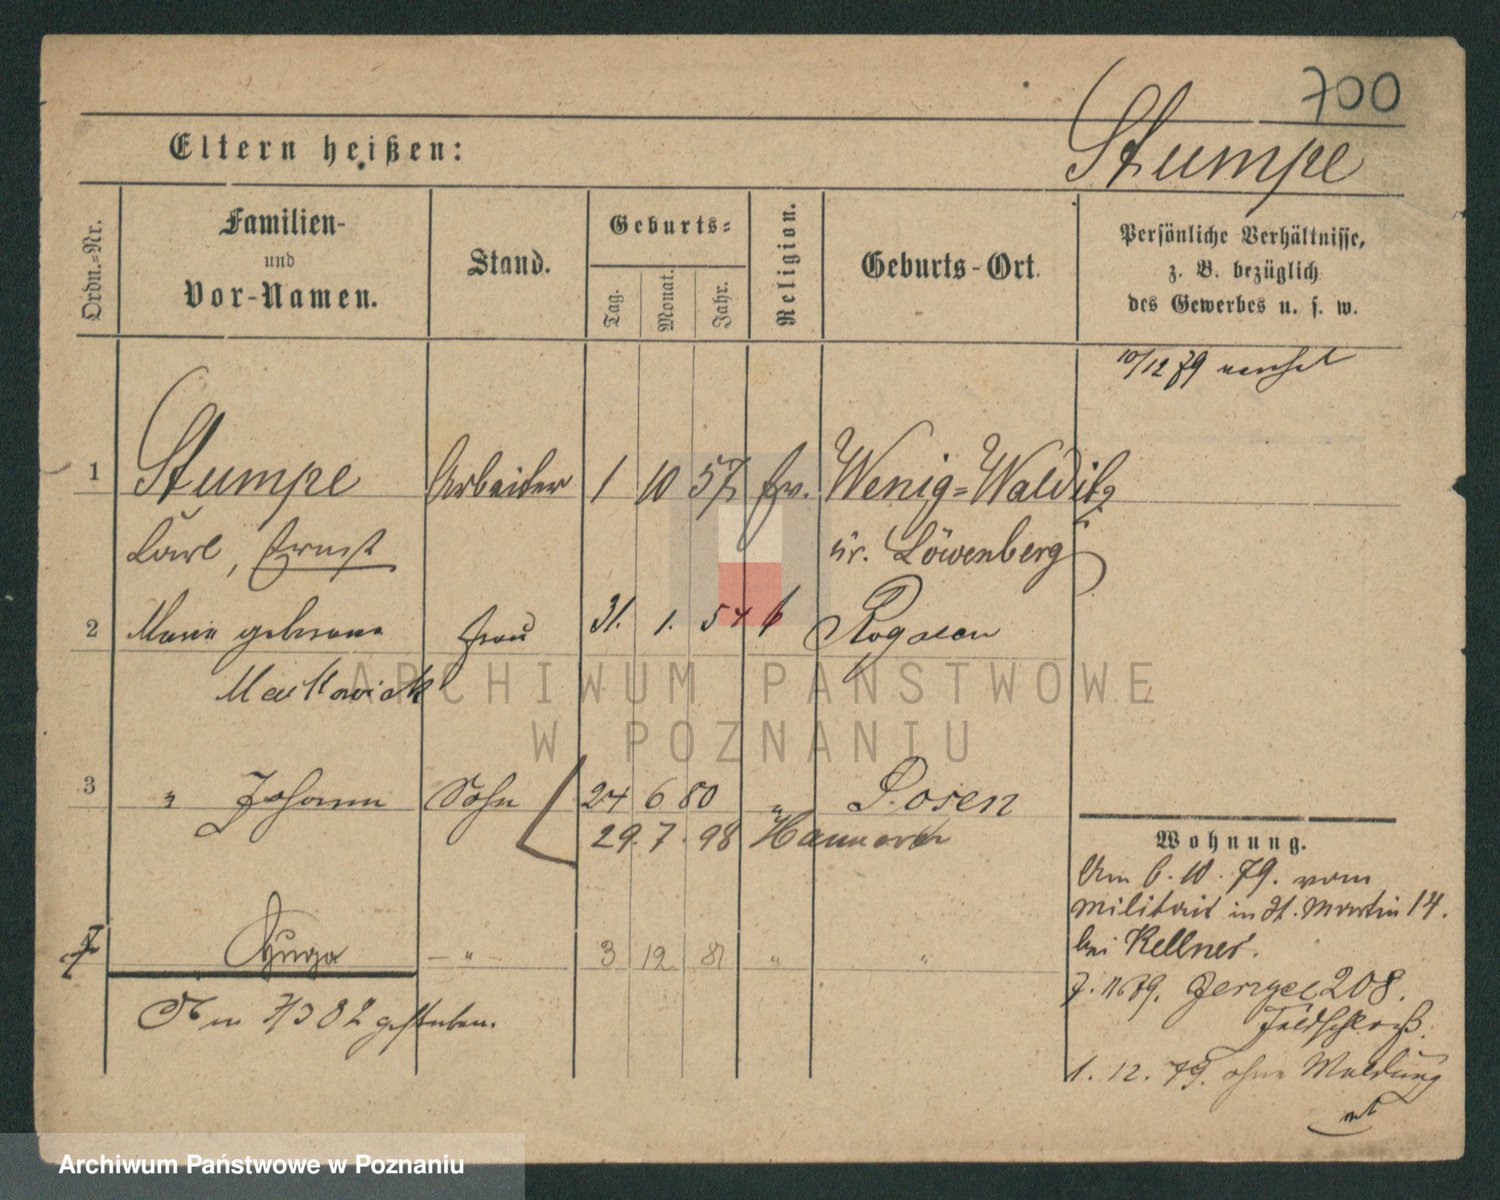 700
Stumpe
Eltern heißen:
Ordn.-Nr.
Familien-
und
Vor-Namen.
Stand.
Geburts-
Tag.
Monat.
Jahr.
Religion.
Geburts-Ort.
Persönliche Verhältnisse,
z. B. bezüglich
des Gewerbes u. s. w.
10/12 79
1 Stumpe Arbeiter 1 10 57 ev. Wenig-Walditz
Carl, Ernst Kr. Löwenberg
2 Marie geborene Frau 31. 1. 54 k Rogasen
Matkowiak
3 " Johann Sohn 24 6 80 " Posen
29. 7. 98 Hannover
Hugo " 3 12 81 " "
7/3 82 gestorben.
Wohnung.
Am 6. 10. 79. vom
Militair in St. Martin 14.
bei Kellner.
7. 11. 79. Jerzyce 208.
Feldschloß.
1. 12. 79. ohne Meldung
ARCHIWUM PAŃSTWOWE
W POZNANIU
Archiwum Państwowe w Poznaniu